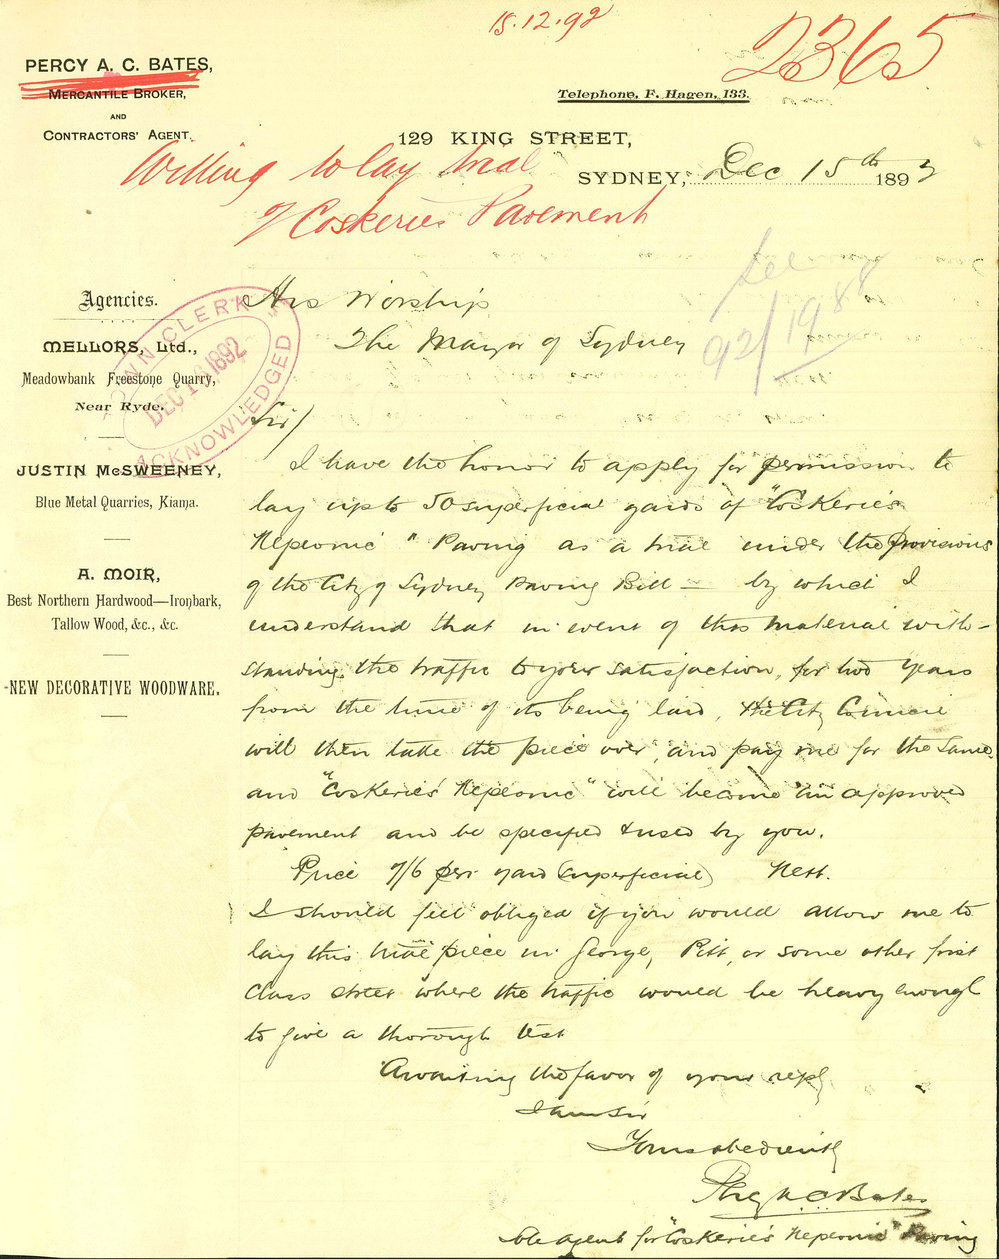 15.12.92
2365
PERCY A. C. BATES,
MERCANTILE BROKER,
AND
CONTRACTORS' AGENT.
Telephone, F. Hagen, 133.
129 KING STREET,
SYDNEY, Dec 15th 1892
Willing to lay trial
of Coskeries Pavement
See
92/1988
Agencies.
MELLORS, Ltd.,
Meadowbank Freestone Quarry,
Near Ryde.
JUSTIN McSWEENEY,
Blue Metal Quarries, Kiama.
A. MOIR,
Best Northern Hardwood—Ironbark,
Tallow Wood, &c., &c.
NEW DECORATIVE WOODWARE.
TOWN CLERK'S
DEC 1892
ACKNOWLEDGED
His Worship
The Mayor of Sydney
Sir/
I have the honor to apply for permission to
lay up to 50 superficial yards of "Coskerie's
Nepeonic" Paving as a trial under the provisions
of the City of Sydney Paving Bill — by which I
understand that in event of this material with-
standing the traffic to your satisfaction, for two years
from the time of its being laid, the City Council
will then take the piece over, and pay me for the same,
and "Coskerie's Nepeonic" will become an approved
pavement and be specified & used by you.
Price /6 per yard (superficial) Nett.
I should feel obliged if you would allow me to
lay this trial piece in George, Pitt, or some other first
class street where the traffic would be heavy enough
to give a thorough test
Awaiting the favor of your reply
I am Sir
Yours obediently
Percy A C Bates
Sole Agent for "Coskerie's Nepeonic" Paving